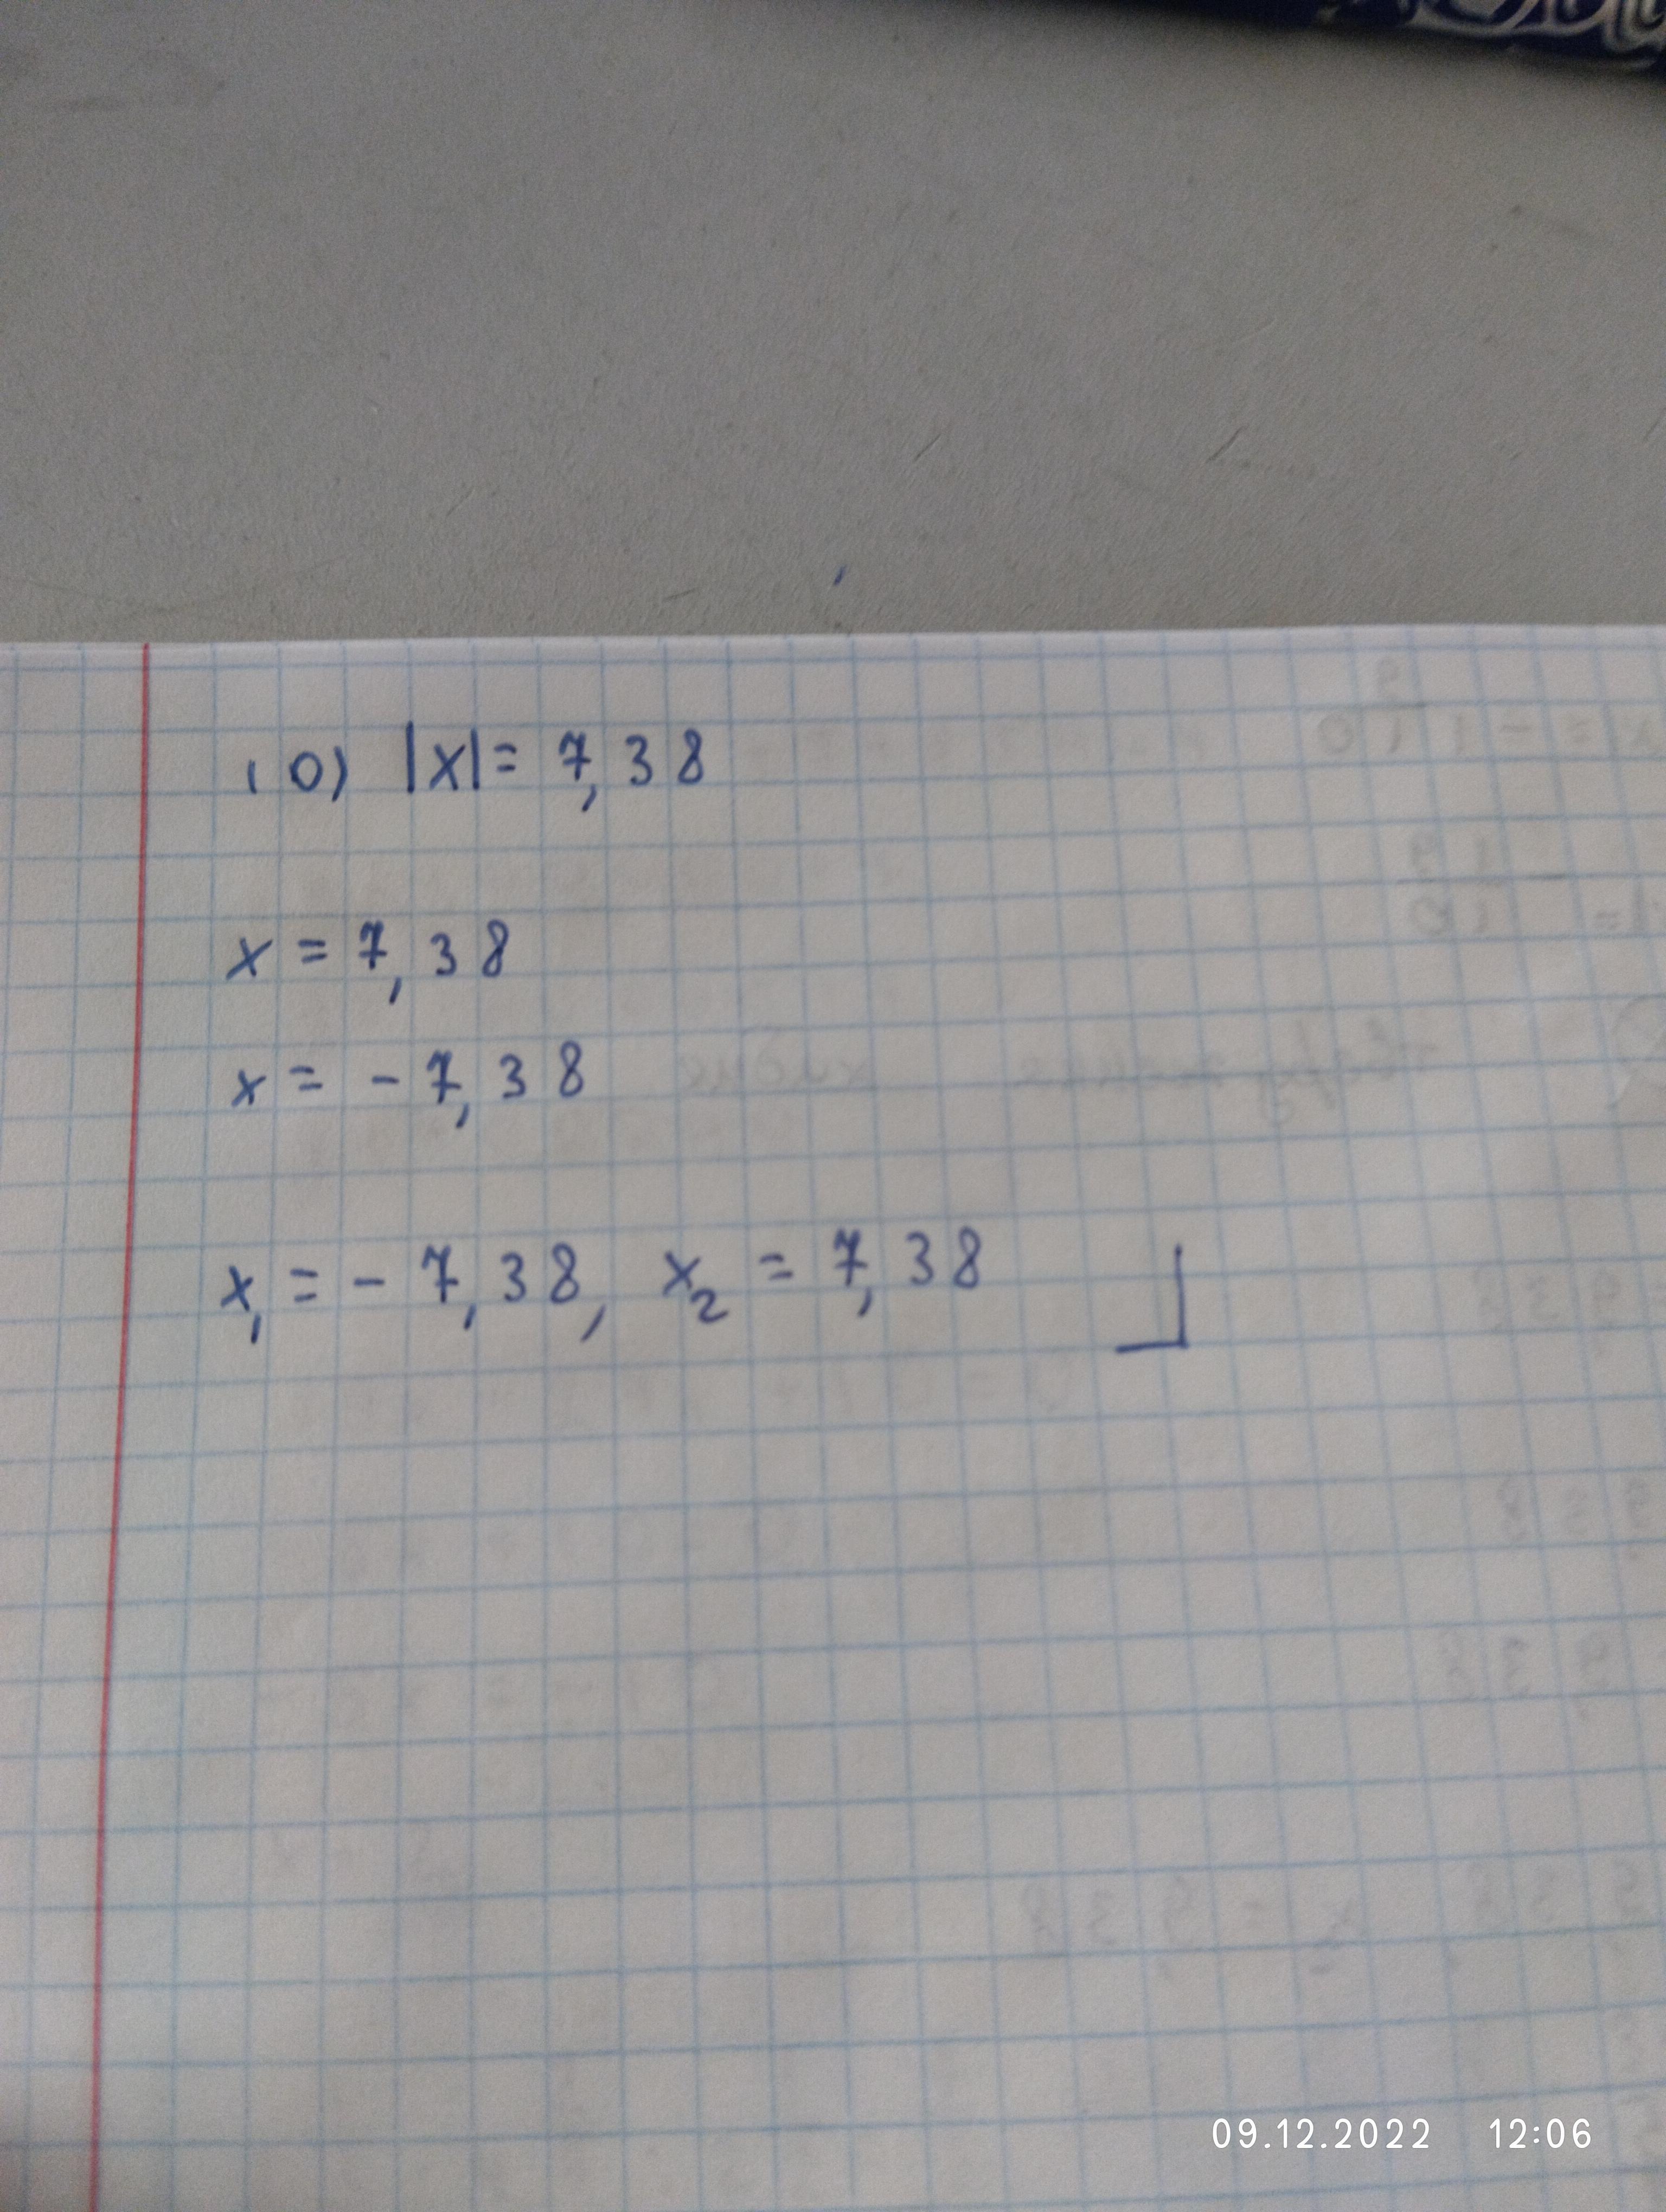 10) |x| = 7,38
x = 7,38
x = - 7,38
x₁ = - 7,38, x₂ = 7,38
09.12.2022 12:06